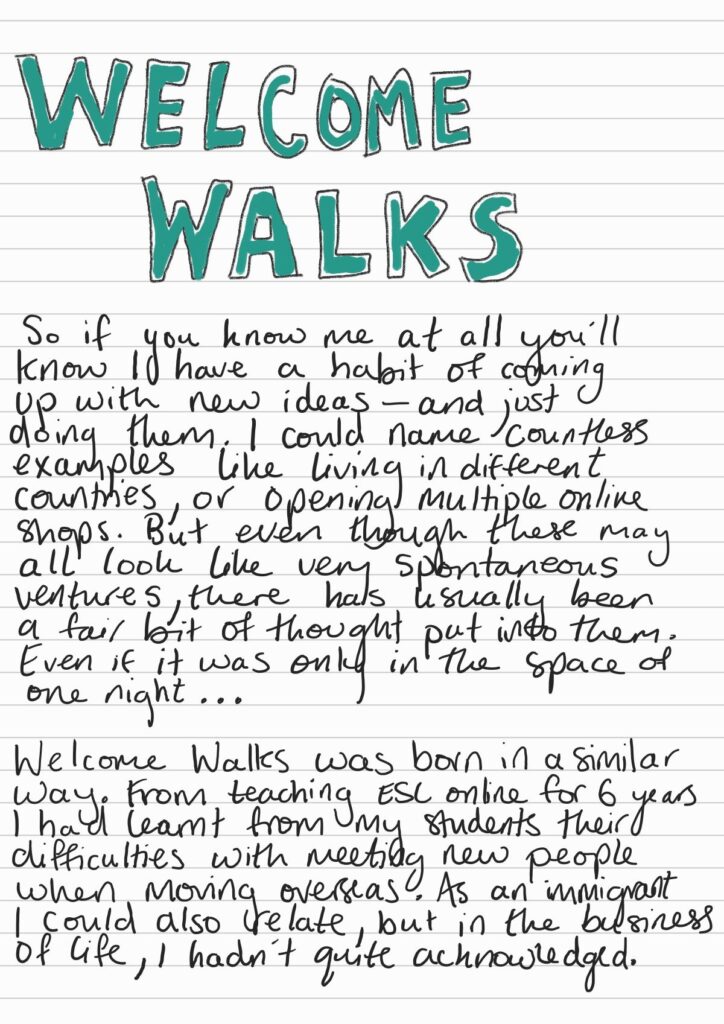 WELCOME
WALKS
So if you know me at all you'll
know I have a habit of coming
up with new ideas – and just
doing them. I could name countless
examples like living in different
countries, or opening multiple online
shops. But even though these may
all look like very spontaneous
ventures, there has usually been
a fair bit of thought put into them.
Even if it was only in the space of
one night...
Welcome Walks was born in a similar
way. From teaching ESL online for 6 years
I had learnt from my students their
difficulties with meeting new people
when moving overseas. As an immigrant
I could also relate, but in the business
of life, I hadn't quite acknowledged.